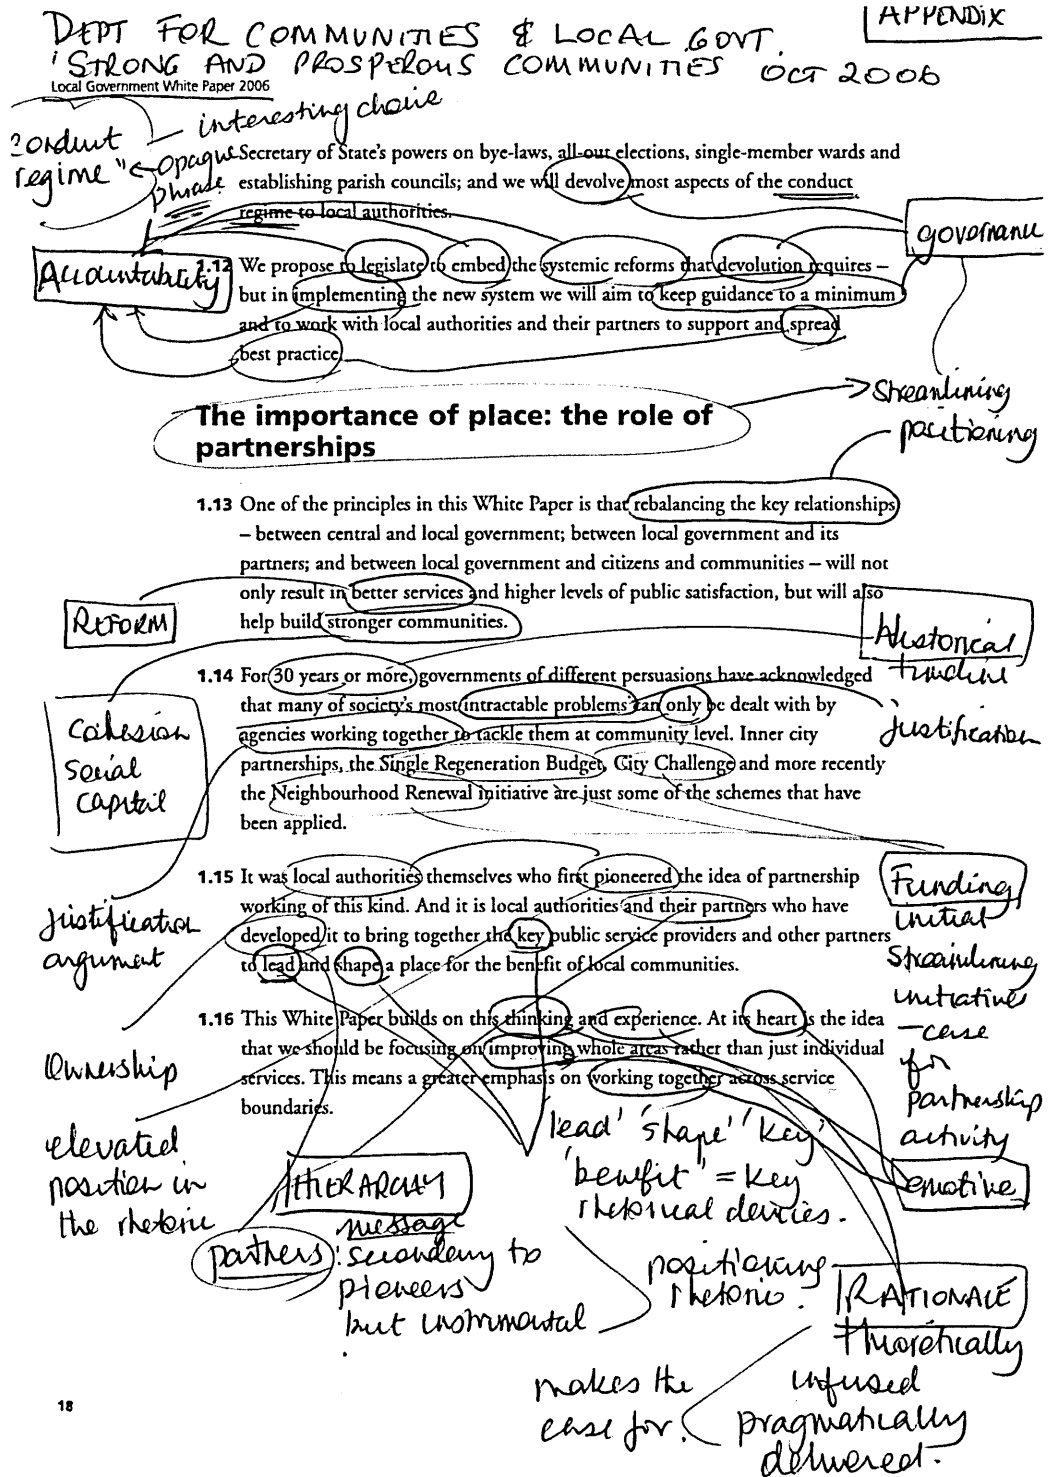 APPENDIX
DEPT FOR COMMUNITIES & LOCAL GOVT.
'STRONG AND PROSPEROUS COMMUNITIES OCT 2006
Local Government White Paper 2006
interesting choice
conduct
regime"
opaque
phrase
Secretary of State's powers on bye-laws, all-out elections, single-member wards and
establishing parish councils; and we will devolve most aspects of the conduct
regime to local authorities.
governance
Accountability
1.12 We propose to legislate to embed the systemic reforms that devolution requires –
but in implementing the new system we will aim to keep guidance to a minimum
and to work with local authorities and their partners to support and spread
best practice.
Streamlining
positioning
The importance of place: the role of
partnerships
1.13 One of the principles in this White Paper is that rebalancing the key relationships
– between central and local government; between local government and its
partners; and between local government and citizens and communities – will not
only result in better services and higher levels of public satisfaction, but will also
help build stronger communities.
REFORM
Historical
timeline
1.14 For 30 years or more, governments of different persuasions have acknowledged
that many of society's most intractable problems can only be dealt with by
agencies working together to tackle them at community level. Inner city
partnerships, the Single Regeneration Budget, City Challenge and more recently
the Neighbourhood Renewal initiative are just some of the schemes that have
been applied.
justification
Cohesion
Social
Capital
1.15 It was local authorities themselves who first pioneered the idea of partnership
working of this kind. And it is local authorities and their partners who have
developed it to bring together the key public service providers and other partners
to lead and shape a place for the benefit of local communities.
Justification
argument
Funding
initial
streamlining
initiatives
– case
for
partnership
activity
1.16 This White Paper builds on this thinking and experience. At its heart is the idea
that we should be focusing on improving whole areas rather than just individual
services. This means a greater emphasis on working together across service
boundaries.
Ownership
elevated
position in
the rhetoric
emotive
'lead' 'shape' 'key'
'benefit' = key
rhetorical devices.
HIERARCHY
message
partners: secondary to
pioneers
but instrumental
positioning
rhetoric.
RATIONALE
theoretically
infused
pragmatically
delivered.
makes the
case for.
18